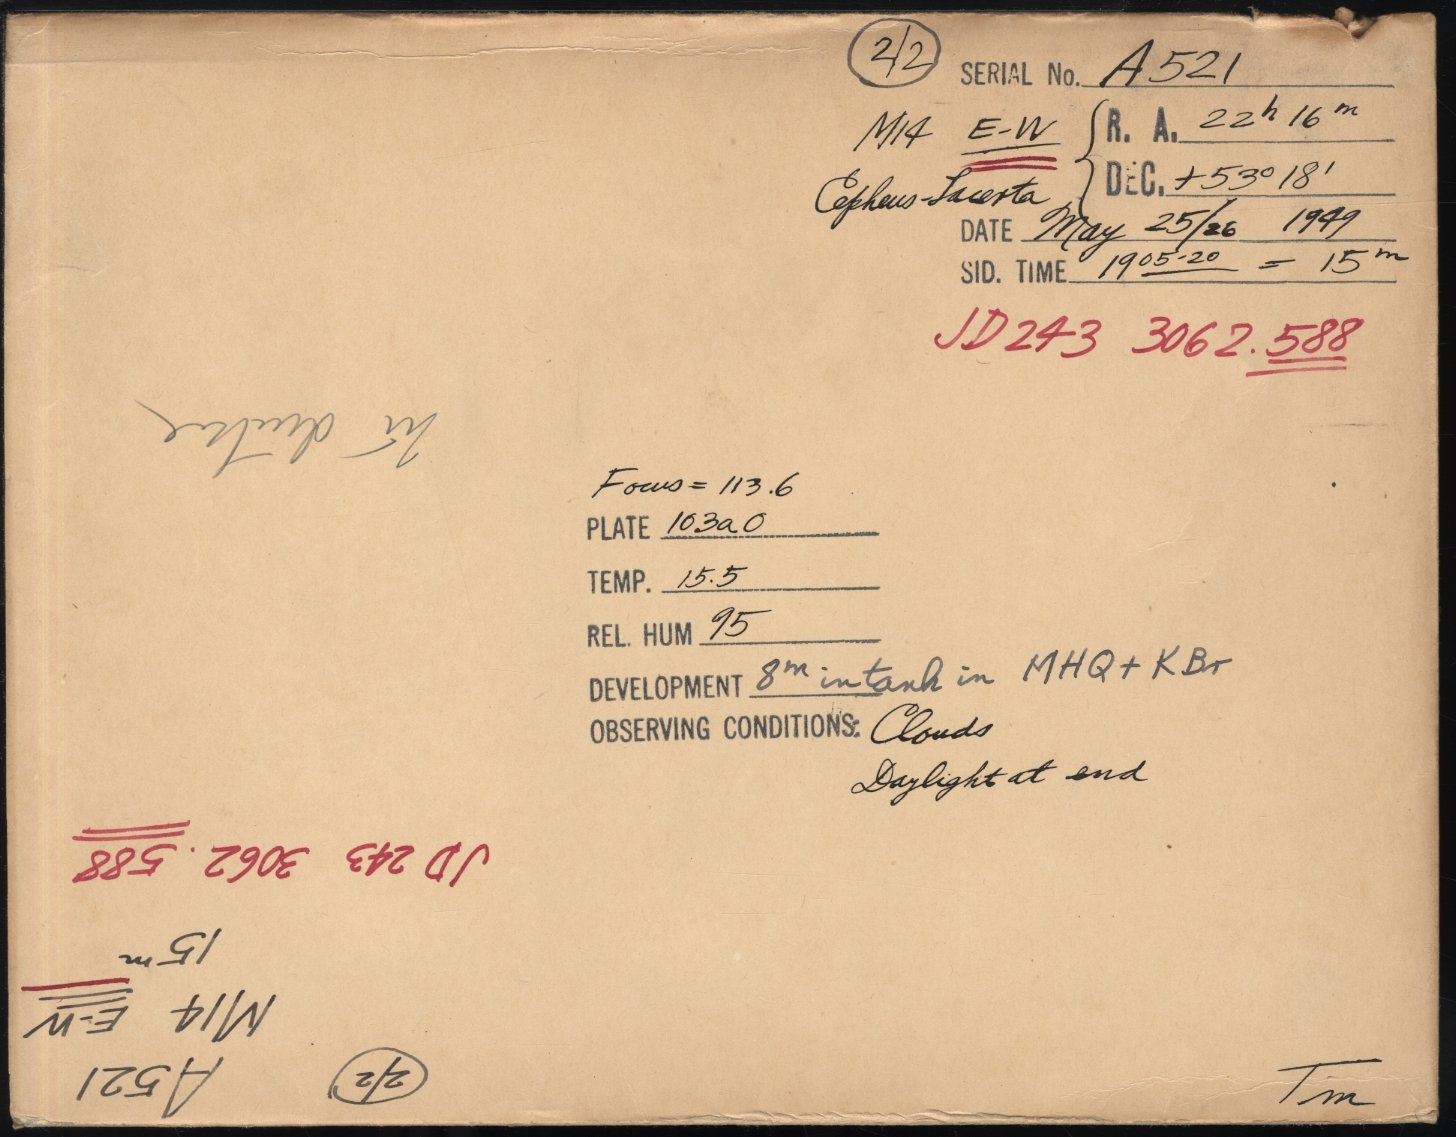 2/2
SERIAL No. A521
M14 E-W R. A. 22h 16m
Cepheus-Lacerta DEC. +53° 18'
DATE May 25/26 1949
SID. TIME 1905-20 = 15m
JD 243 3062.588
Focus = 113.6
PLATE 103a0
TEMP. 15.5
REL. HUM 95
DEVELOPMENT 8m in tank in MHQ + KBr
OBSERVING CONDITIONS: Clouds
Daylight at end
Tm
2/2
A521
M14 E-W
15m
JD 243 3062.588